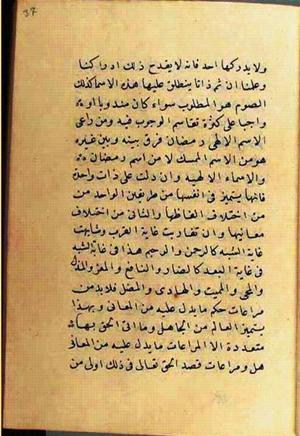 37
ولا يدركها احد فانه لا يقدح ذلك ادراكنا
وعلمنا ان ثم ذاتا ينطلق عليها هذه الاسما كذلك
الصوم هو المطلوب سواء كان مندوبا او
واجبا على كثرة تقاسيم الوجوب فيه ومن راعى
الاسم الالهى رمضان فرق بينه وبين غيره
هو من الاسم الممسك لا من اسم رمضان
والاسماء الالهية وان دلت على ذات واحدة
فانها يتميز فى انفسها من طريقين الواحد من
من اختلاف الفاظها والثانى من اختلاف
معانيها وان تقاربت غاية القرب وتشابهت
غاية الشبه كالرحمن والرحيم هذا فى غاية الشبه
فى غاية البعد كالضار والنافع والمعز والمذل
والمحى والمميت والهادى والمضل فلا بد من
مراعات حكم ما يدل عليه من المعانى وبهذا
يتميز العالم من الجاهل وما اتى الحق بها
متعددة الا لمراعات ما يدل عليه من المعانى
هل ومراعات قصد الحق تعالى فى ذلك اولى من